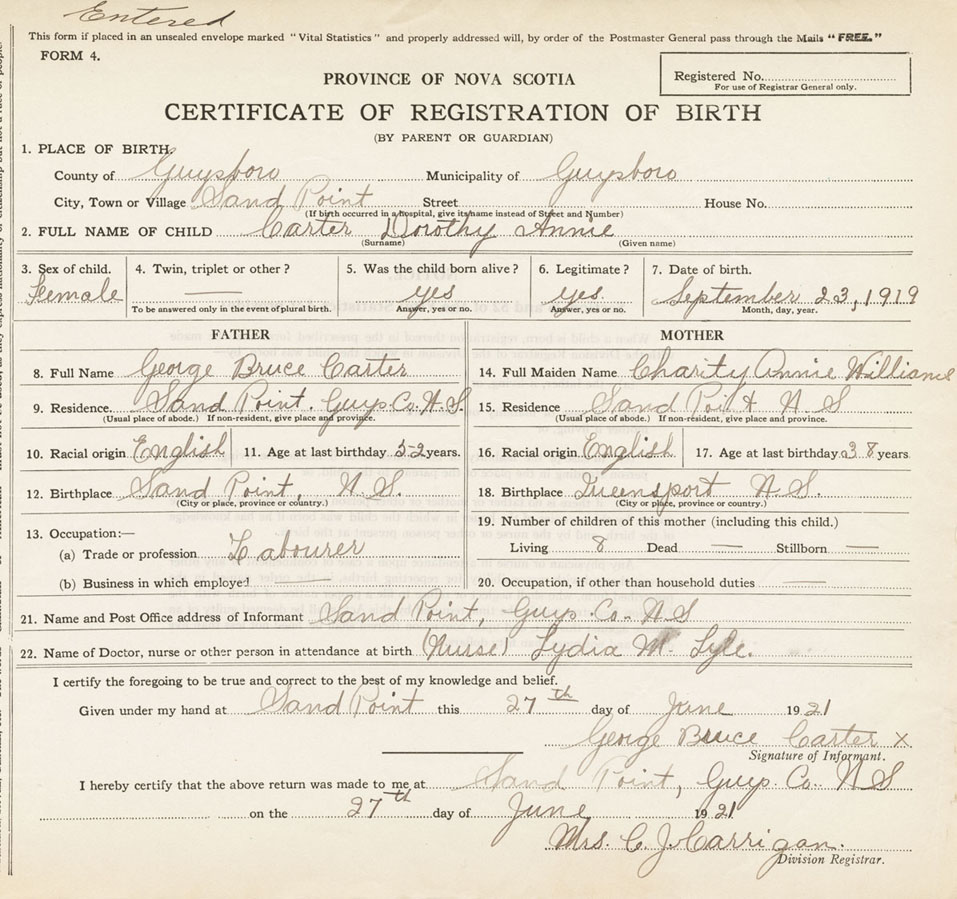 Entered
This form if placed in an unsealed envelope marked "Vital Statistics" and properly addressed will, by order of the Postmaster General pass through the Mails "FREE."
FORM 4.
Registered No.
For use of Registrar General only.
PROVINCE OF NOVA SCOTIA
CERTIFICATE OF REGISTRATION OF BIRTH
(BY PARENT OR GUARDIAN)
1. PLACE OF BIRTH.
County of Guysboro Municipality of Guysboro
City, Town or Village Sand Point Street House No.
(If birth occurred in a hospital, give its name instead of Street and Number)
2. FULL NAME OF CHILD Carter Dorothy Annie
(Surname) (Given name)
3. Sex of child. 4. Twin, triplet or other? 5. Was the child born alive? 6. Legitimate? 7. Date of birth.
Female — yes yes. September 23, 1919
To be answered only in the event of plural birth. Answer, yes or no. Answer, yes or no. Month, day, year.
FATHER MOTHER
8. Full Name George Bruce Carter 14. Full Maiden Name Charity Annie Williams
9. Residence. Sand Point. Guys. Co. N.S. 15. Residence Sand Point N S
(Usual place of abode.) If non-resident, give place and province. (Usual place of abode.) If non-resident, give place and province.
10. Racial origin English 11. Age at last birthday 52 years. 16. Racial origin English 17. Age at last birthday 38 years
12. Birthplace Sand Point, N.S. 18. Birthplace Queensport N.S.
(City or place, province or country.) (City or place, province or country.)
13. Occupation:— 19. Number of children of this mother (including this child.)
(a) Trade or profession Labourer Living 8 Dead — Stillborn —
(b) Business in which employed — 20. Occupation, if other than household duties —
21. Name and Post Office address of Informant Sand Point, Guys. Co. N S
22. Name of Doctor, nurse or other person in attendance at birth (Nurse) Lydia M. Lyle.
I certify the foregoing to be true and correct to the best of my knowledge and belief.
Given under my hand at Sand Point this 27th day of June 1921
George Bruce Carter X
Signature of Informant.
I hereby certify that the above return was made to me at Sand Point, Guys. Co. N S
on the 27th day of June 1921
Mrs. C. J. Carrigan.
Division Registrar.